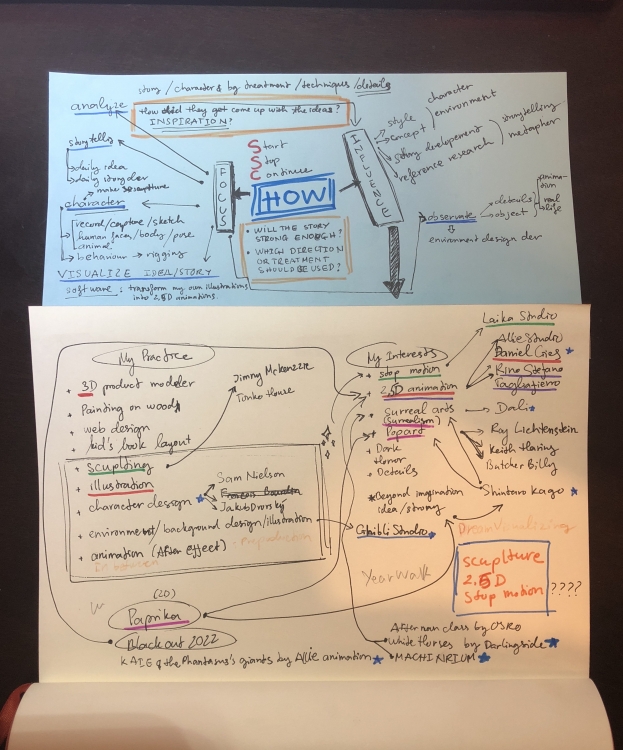 story / character & by treatment / techniques / details
analyze
How did they get come up with the ideas?
INSPIRATION?
storytelling
daily idea
daily story der
make
character
record/capture/sketch
human faces/body/pose
animal
behaviour → rigging
VISUALIZE IDEA/STORY
software : transform my own illustrations
into 2,5D animations.
FOCUS
Start
Stop
Continue
HOW
• WILL THE STORY
STRONG ENOUGH?
• WHICH DIRECTION
OR TREATMENT
SHOULD BE USED?
INFLUENCE
style
concept
character
environment
story developement
reference research
storytelling
metapher
observate
details
object
animation
real
life
environment design dev
My Practice
+ 3D product modeler
+ Painting on wood
+ web design
+ kid's book layout
+ sculpting
+ illustration
+ character design
+ environment/background design/illustration
+ animation (After effect)
- Preproduction
In between
Jimmy McKenzzie
Toriko House
Sam Nielson
Jakub Dvorský
My Interests
+ stop motion
+ 2,5D animation
+ surreal arts
(surrealism)
+ Popart
+ Dark
Horror
+ Details
*Beyond imagination
idea/strong
Ghibli Studio
Laika Studio
Allie Studio
Daniel Cries
Rino Stefano
Tagliafierro
Dali
Ray Lichtenstein
Keith Haring
Butcher Billy
Shintaro Kago
Dream Visualizing
scuplture
2,5D
Stop motion
????
YearWalk
W
(2D)
Paprika
Blackout 2022
KAIE & the Phantasms's giants by Allie animation
Afterman class by OSRO
White Horses by Darlingside
MACHINRIUM